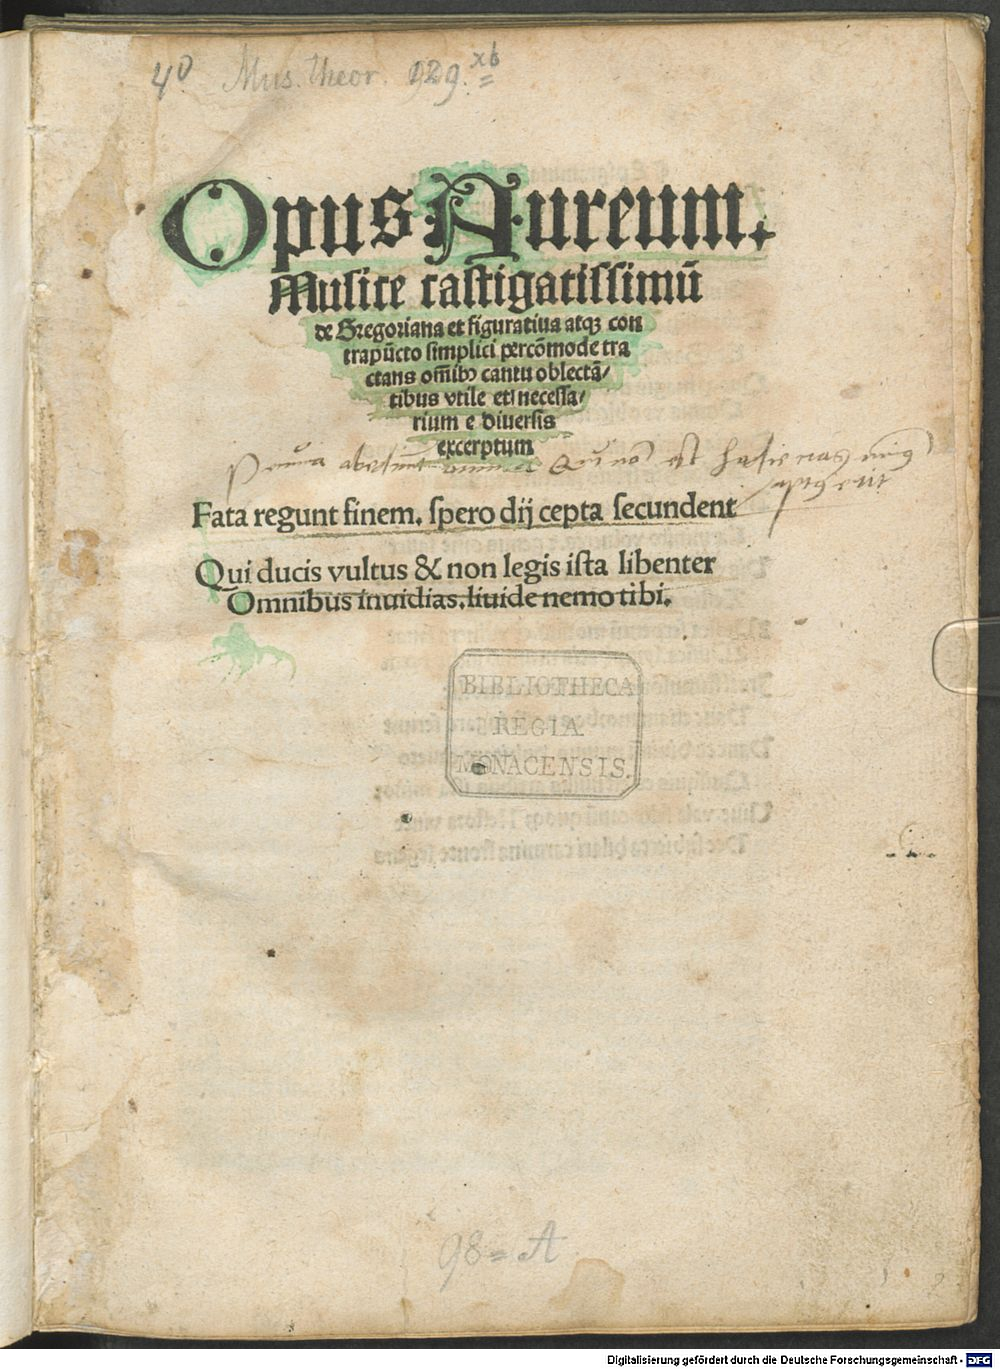 4° Mus. theor. 929. xb
Opus Aureum.
Musice castigatissimū
de Gregoriana et figuratiua atqꝫ con
trapūcto simplici percōmode tra
ctans oīnibꝰ cantu oblectā/
tibus vtile et necessa/
rium e diuersis
excerptum
est
Fata regunt finem. spero dij cepta secundent
Qui ducis vultus & non legis ista libenter
Omnibus inuidias. liuide nemo tibi.
BIBLIOTHECA
REGIA
MONACENSIS.
98=A
Digitalisierung gefördert durch die Deutsche Forschungsgemeinschaft - DFG